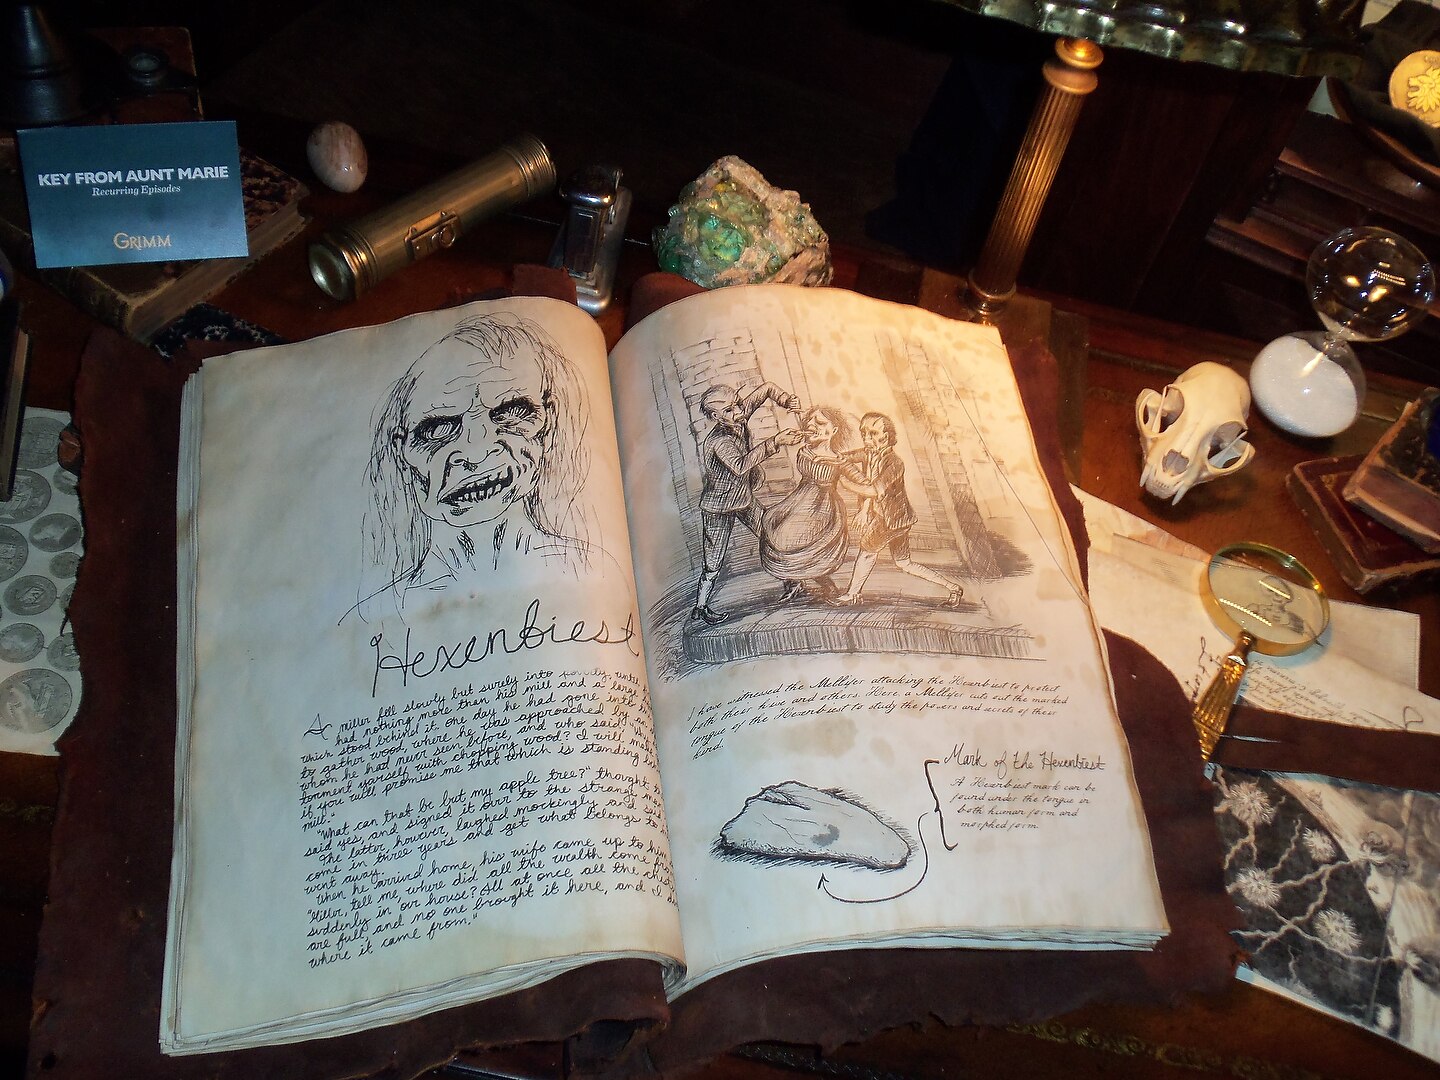 KEY FROM AUNT MARIE
Recurring Episodes
GRIMM
Hexenbiest
A miller fell slowly but surely into
had nothing more than his mill and a large
which stood behind it. one day he had gone into
to gather wood, where he was approached by
whom he had never seen before, and who said
torment yourself with chopping wood? I will make
if you will promise me that which is standing
mill."
"What can that be but my apple tree?" thought
said yes, and signed it over to the strange
The latter, however, laughed mockingly and said
come in three years and get what belongs to
went away.
When he arrived home, his wife came up to him
"Miller, tell me, where did all the wealth come from
suddenly in our house? All at once all the
are full and no one brought it here, and I
where it came from."
I have witnessed the Mellifer attacking the Hexenbiest to protect
both their hive and others. Here, a Mellifer cuts out the marked
tongue of the Hexenbiest to study the powers and secrets of their
kind.
Mark of the Hexenbiest
A Hexenbiest mark can be
found under the tongue in
both human form and
morphed form.